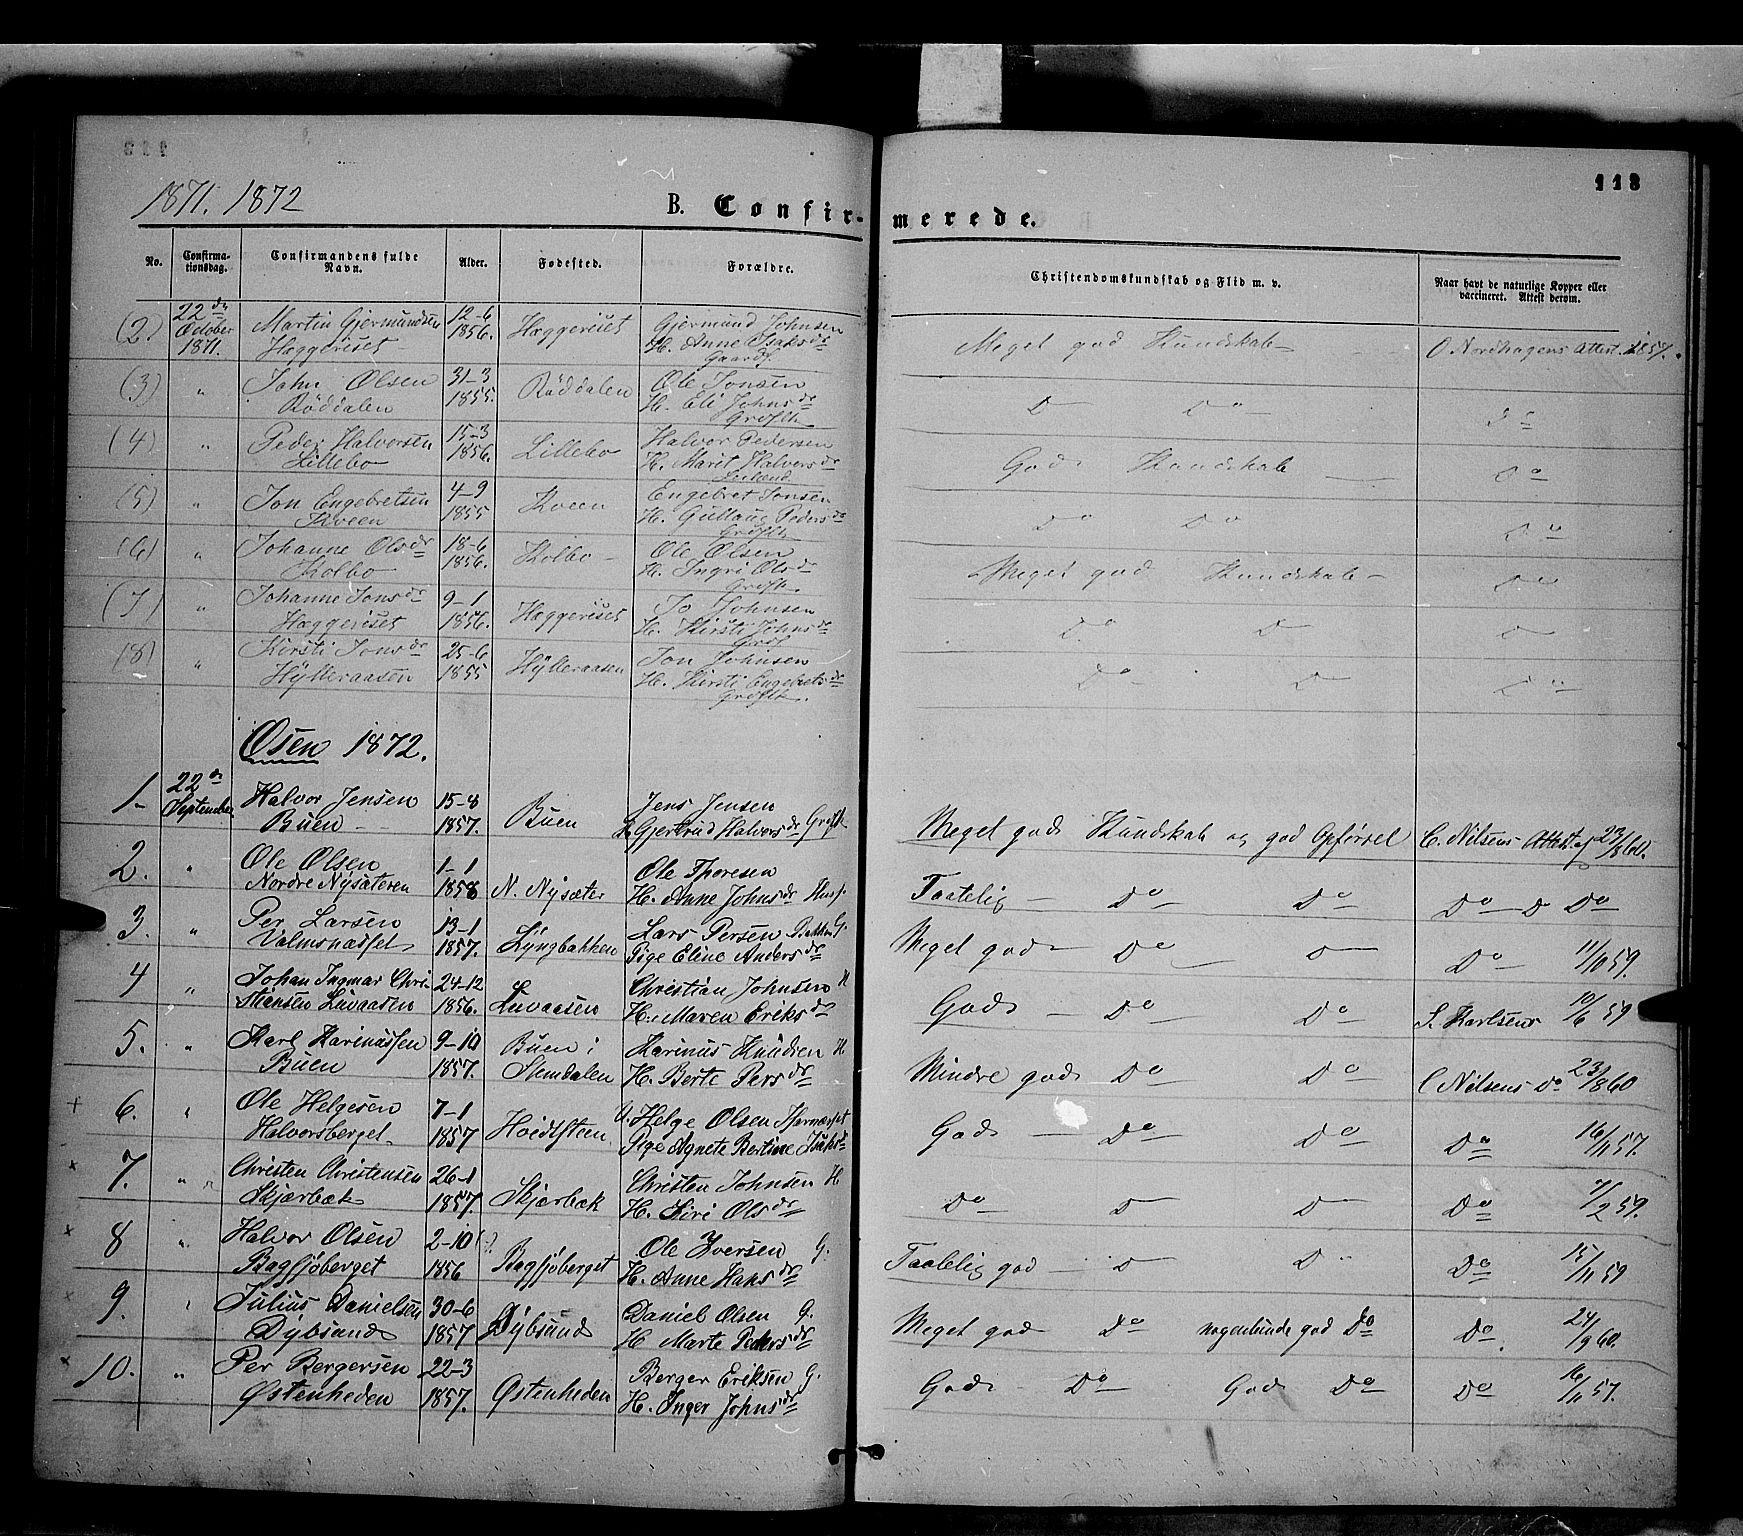 1871. 1872
B. Confirmerede.
113
No. Confirmationsdag. Confirmandens fulde Navn. Alder. Fødested. Forældre. Christendomskundskab og Flid m. v. Naar havt de naturlige Kopper eller vaccineret. Attest derom.
(2) 22de October 1871. Martin Gjermundsen Haggeriset 12-6 1856. Haggeriset Gjermund Johnsen H. Anne Isaksdr Gaardf. Meget god Kundskab O Nordhagens Attest. 1857.
(3) " John Olsen Röddalen 31-3 1855. Röddalen Ole Jonsen H. Eli Johnsdr Grøflk D Do Do
(4) " Peder Halvorsen Lillebo 15-3 1856. Lillebo Halvor Pedersen H. Marit Halversdr God Kundskab Do
(5) " Jon Engebretsen Kveen 4-9 1855 Kveen Engebret Jonsen H. Gullaug Pedersdr Grøflk Do Do Do
(6) " Johanne Olsdr Kolbo 18-6 1856. Kolbo Ole Olsen H. Ingri Olsdr Grøflk Meget god Kundskab Do
(7) " Johanne Jonsdr Haggeriset 9-1 1856. Haggeriset Jo Johnsen H. Kirsti Johnsdr Grøf Do D D
(8) " Kirsti Jonsdr Hÿlleraasen 25-6 1855 Hÿlleraasen Jon Johnsen H. Kirsti Engebretsdr Grøflk. Do D Do
Osen 1872.
1. 22de September Halvor Jensen Buen 15-8 1857. Buen Jens Jensen H. Gjertrud Halversdr Grøflk Meget god Kundskab og god Opførsel C. Nilsens Attest af 23/8 60.
2. " Ole Olsen Nordre Nysæteren 1-1 1858 N. Nysæter Ole Thoresen H. Anne Johnsdr Husf. Taalelig Do Do Do D Do
3. " Per Larsen Valmsnæsset 13-1 1857. Lyngbakken Lars Persen Bakken G. Pige Eline Andersdr Meget god Do D Do 11/10 59.
4 " Johan Ingmar Christiansen Luvaasen 24-12 1856. Luvaasen Christian Johnsen H H. Maren Eriksdr God Do Do S. Karlsens 10/6 59
5. " Karl Karinussen Buen 9-10 1857. Buen i Slemdalen Karinus Knudsen H H. Berte Persdr Mindre god Do Do C Nilsens Do 23/8 60
+ 6. " Ole Helgesen Halvorsberget 7-1 1857 Hoidsteen U. Helge Olsen Pige Agnete Bertine Isaksdr God Do Do Do 16/11 57.
x 7. " Christen Christensen Skjærbæk 26-1 1857. Skjærbæk Christen Johnsen H H. Siri Olsdr Do D D Do 7/2 59.
x 8 " Halvor Olsen Bagsjøberget 2-10 1856 Bagsjøberget Ole Iversen G. H. Anne Hansdr Taalelig god D D Do 15/11 59
x 9. " Julius Danielsen Dybsand 30-6 1857 Dybsand Daniel Olsen G. H Marte Pedersdr Meget god Do nogenlunde god Do Do 24/9 60.
x 10. " Per Bergersen Østenheden 22-3 1857. Østenheden Berger Eriksen G. H. Inger Johnsdr God Do God Do Do 16/11 57.